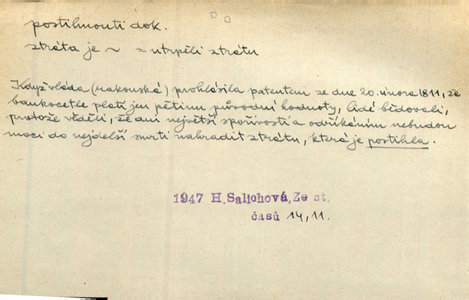 postihnouti dok.
ztráta je ~ = utrpěli ztrátu
Když vláda (rakouská) prohlásila patentem ze dne 20. února 1811, že
bankocetle platí jen pětinu původní hodnoty, lidé bědovali,
protože věděli, že ani největší spořivostí a odříkáním nebudou
moci do nejdelší smrti nahradit ztrátu, která je postihla.
1947 H. Salichová, Ze st.
časů 14, 11.